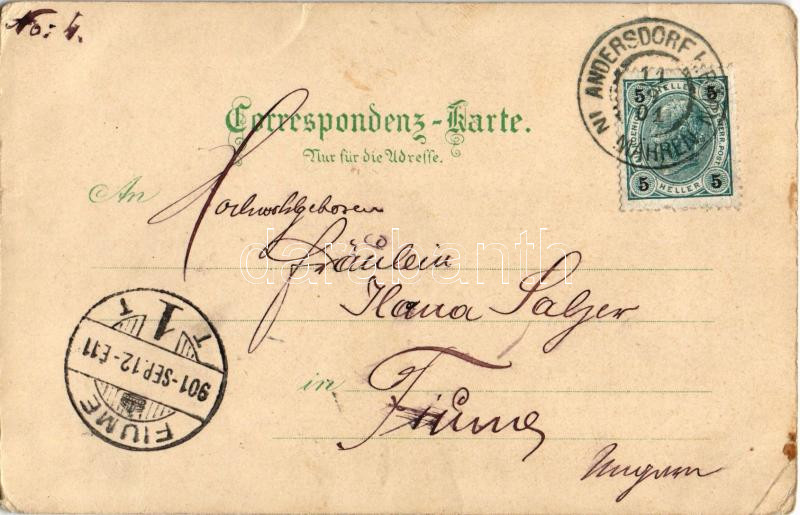 No: 4.
ANDERSDORF IN MÄHREN
11
01
5 HELLER 5
5 HELLER 5
Correspondenz-Karte.
Nur für die Adresse.
An Hochwohlgeboren
Fräulein
Ilona Salzer
in Fiume
Ungarn
T 1 T
901-SEP.12-É.11
FIUME
darabanth